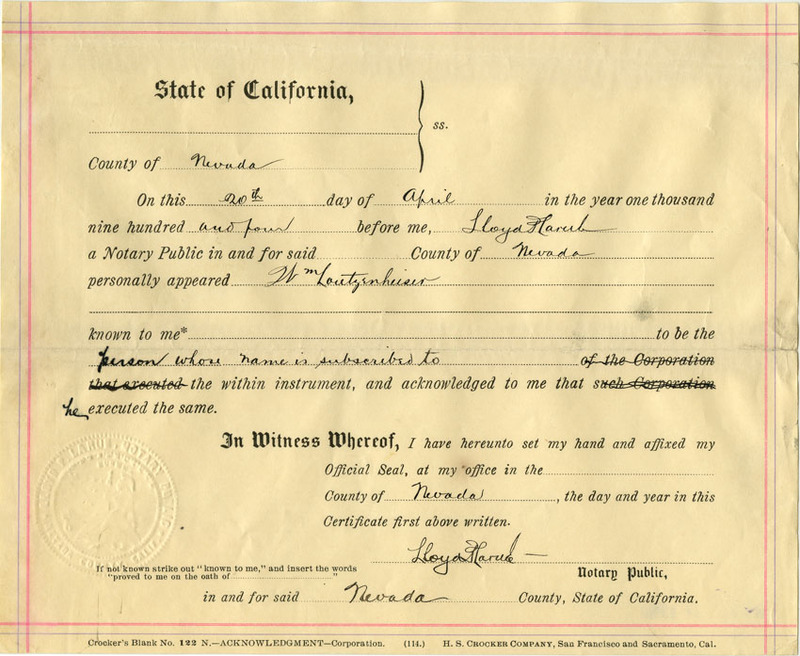 State of California,
ss.
County of Nevada
On this 20th day of April in the year one thousand
nine hundred and four before me, Lloyd P Larue
a Notary Public in and for said County of Nevada
personally appeared Wm Loutzenheiser
known to me* to be the
person whose name is subscribed to of the Corporation
that executed the within instrument, and acknowledged to me that such Corporation
he executed the same.
In Witness Whereof, I have hereunto set my hand and affixed my
Official Seal, at my office in the
County of Nevada, the day and year in this
Certificate first above written.
Lloyd P Larue
If not known strike out "known to me," and insert the words
"proved to me on the oath of "
Notary Public,
in and for said Nevada County, State of California.
Crocker's Blank No. 122 N.—ACKNOWLEDGMENT—Corporation. (114.) H. S. CROCKER COMPANY, San Francisco and Sacramento, Cal.